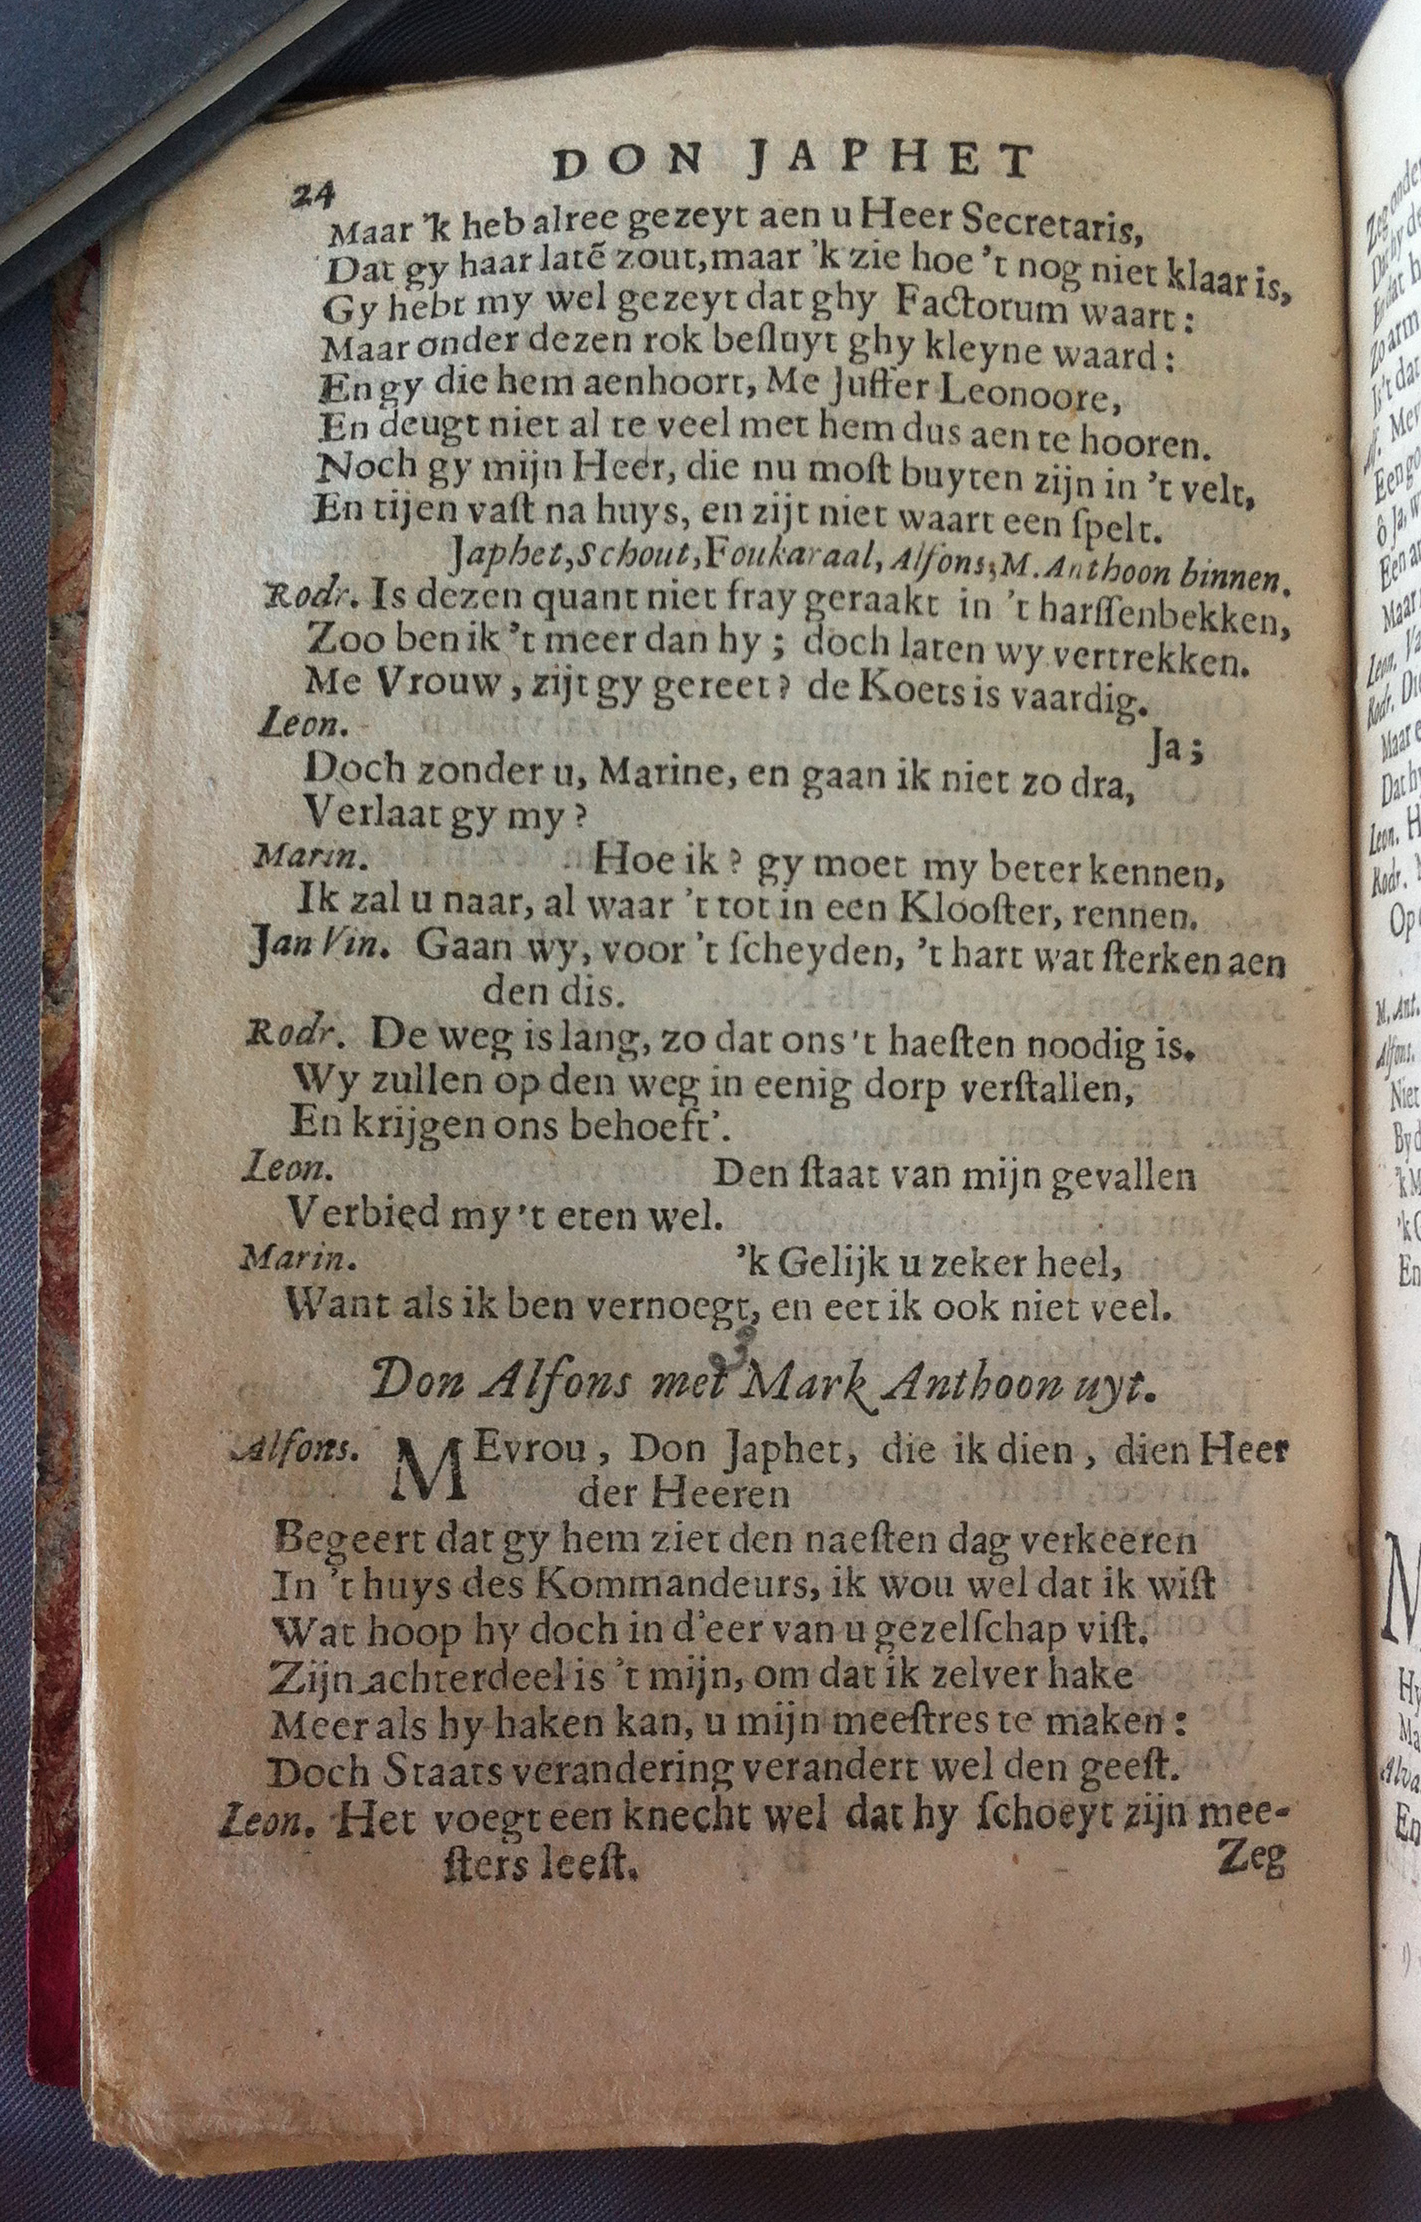 DON JAPHET
24
Maar 'k heb alree gezeyt aen u Heer Secretaris,
Dat gy haar latẽ zout, maar 'k zie hoe 't nog niet klaar is,
Gy hebt my wel gezeyt dat ghy Factotum waart:
Maar onder dezen rok beſluyt ghy kleyne waard:
En gy die hem aenhoort, Me Juffer Leonoore,
En deugt niet al te veel met hem dus aen te hooren.
Noch gy mijn Heer, die nu moſt buyten zijn in 't velt,
En tijen vaſt na huys, en zijt niet waart een ſpelt.
Japhet, Schout, Foukaraal, Alfons, M. Anthoon binnen.
Rodr. Is dezen quant niet fray geraakt in 't harſſenbekken,
Zoo ben ik 't meer dan hy; doch laten wy vertrekken.
Me Vrouw, zijt gy gereet? de Koets is vaardig.
Leon. Ja;
Doch zonder u, Marine, en gaan ik niet zo dra,
Verlaat gy my?
Marin. Hoe ik? gy moet my beter kennen,
Ik zal u naar, al waar 't tot in een Klooſter, rennen.
Jan Vin. Gaan wy, voor 't ſcheyden, 't hart wat ſterken aen
den dis.
Rodr. De weg is lang, zo dat ons 't haeſten noodig is.
Wy zullen op den weg in eenig dorp verſtallen,
En krijgen ons behoeft'.
Leon. Den ſtaat van mijn gevallen
Verbied my 't eten wel.
Marin. 'k Gelijk u zeker heel,
Want als ik ben vernoegt, en eet ik ook niet veel.
Don Alfons met Mark Anthoon uyt.
Alfons. MEvrou, Don Japhet, die ik dien, dien Heer
der Heeren
Begeert dat gy hem ziet den naeſten dag verkeeren
In 't huys des Kommandeurs, ik wou wel dat ik wiſt
Wat hoop hy doch in d'eer van u gezelſchap viſt.
Zijn achterdeel is 't mijn, om dat ik zelver hake
Meer als hy haken kan, u mijn meeſtres te maken:
Doch Staats verandering verandert wel den geeſt.
Leon. Het voegt een knecht wel dat hy ſchoeyt zijn mee-
ſters leeſt.
Zeg